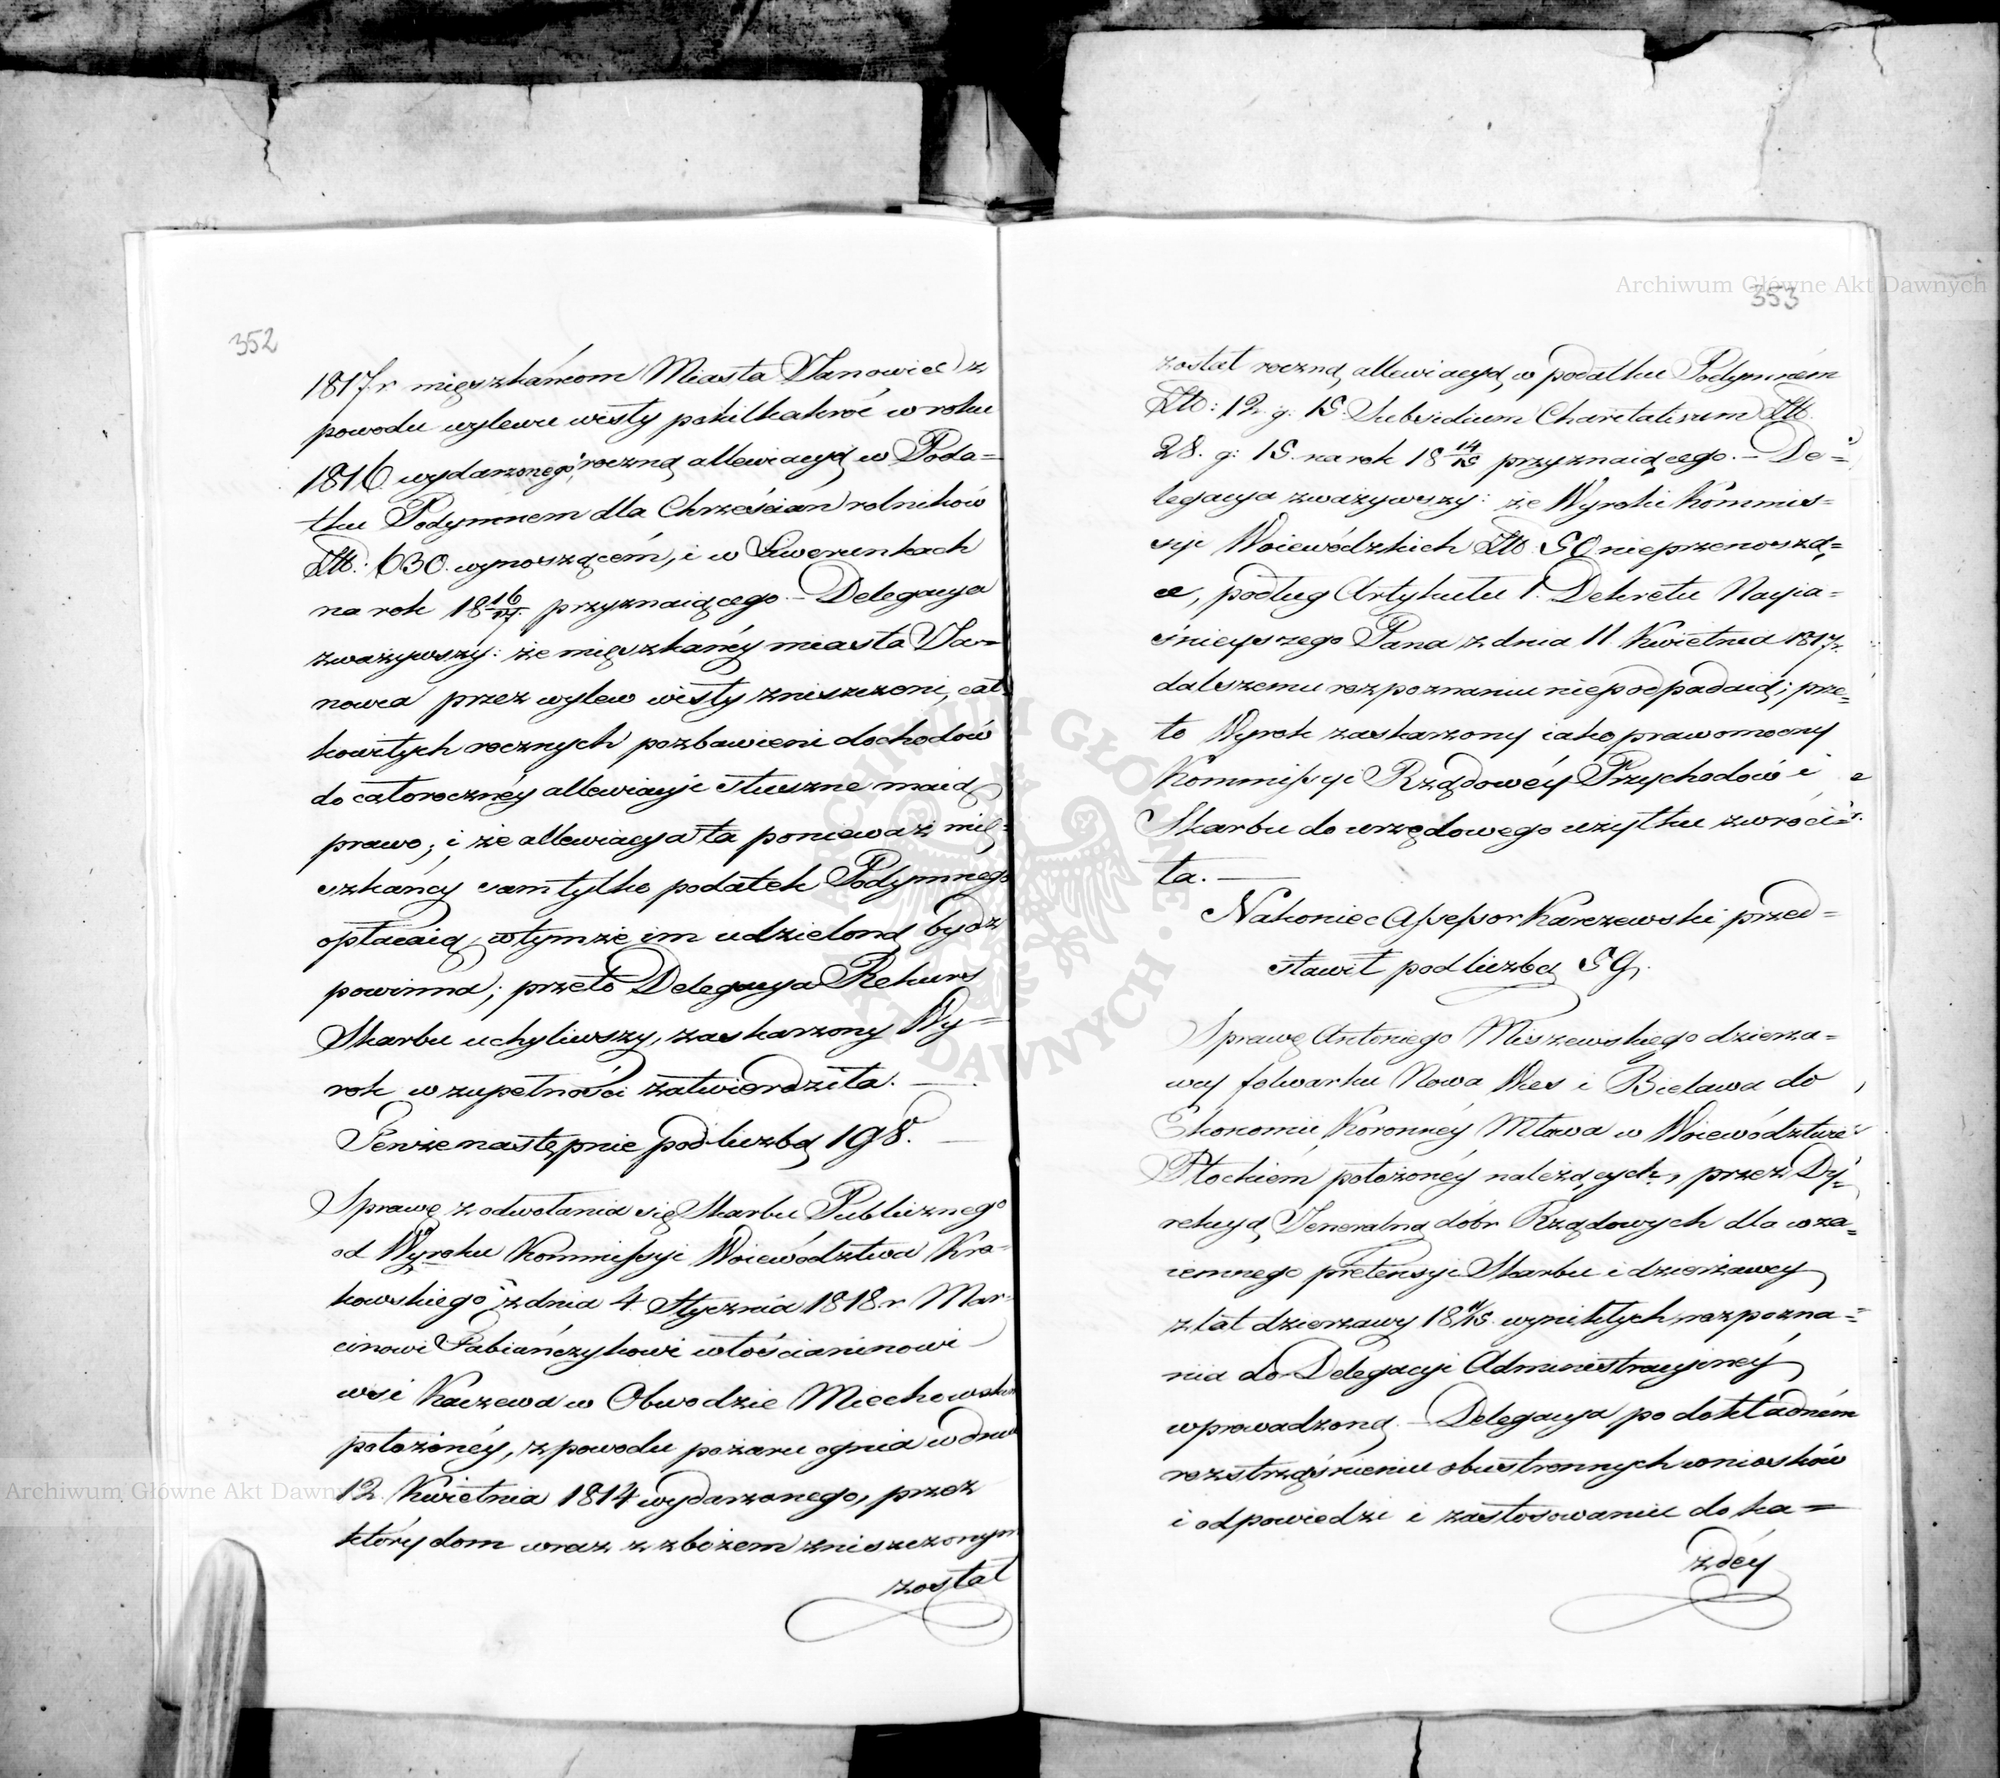 352
1817r mięszkańcom Miasta Janowiec z
powodu wylewu wisły pokilkakroć w roku
1816. wydarzonego, roczną allewiacyą w Poda=
tku Podymnem dla Chrześcian rolników
Złt: 630. wynoszącém, i w Liwerunkach
na rok 18 16/17. przyznaiącego. — Delegacya
zważywszy: że mięszkańcy miasta Ja=
nowca przez wylew wisły zniszczeni, cał=
kowitych rocznych pozbawieni dochodów
do całorocznéy allewiacyi słuszne maią
prawo; i że allewiacya ta ponieważ mię=
szkańcy sam tylko podatek Podymnego
opłacaią, w tymże im udzieloną bydź
powinna; przeto Delegacya Rekurs
Skarbu uchyliwszy, zaskarzony Wy=
rok w zupełności zatwierdziła. —
Tenże następnie pod liczbą 198. —
Sprawę z odwołania się Skarbu Publicznego
od Wyroku Kommissyi Woiewództwa Kra=
kowskiego z dnia 4. Stycznia 1818 r. Mar=
cinowi Fabiańczykowi włościaninowi
wsi Kaczewa w Obwodzie Miechowskim
położonéy, z powodu pożaru ognia w dniu
12. Kwietnia 1814 wydarzonego, przez
który dom wraz z zbożem zniszczonym
został
Archiwum Główne Akt Dawnych
353
został roczną allewiacyą w podatku Podymném
Złt: 12. g: 15. Subsidium Charitativum Złt.
28. g: 15. na rok 18 14/15 przyznaiącego. — De=
legacya zważywszy: że Wyroki Kommis=
syi Woiewódzkich Złt: 50 nieprzenoszą=
ce, podług Artykułu 1. Dekretu Nayia=
śnieyszego Pana z dnia 11 Kwietnia 1817r.
dalszemu rozpoznaniu niepodpadaią; prze=
to Wyrok zaskarzony iako prawomocny
Kommissyi Rządowéy Przychodów i
Skarbu do urzędowego użytku zwróci=
ła. —
Nakoniec Assessor Karczewski przed=
stawił pod liczbą 59.
Sprawę Antoniego Miszewskiego dzierża=
wcy folwarku Nowa Wies i Bielawa do
Ekonomii Koronnéy Mława w Woiewództwie
Płockiém położonéy należących, przez Dy=
rekcyą Jeneralną dóbr Rządowych dla wza=
iemnego pretensyi Skarbu i dzierżawcy
z lat dzierżawy 18 11/15. wynikłych, rozpozna=
nia do Delegacyi Administracyinéy
wprowadzoną. — Delegacya po dokładném
rozstrząśnieniu obustronnych wniosków
i odpowiedzi i zastosowaniu do ka=
żdéy
Archiwum Główne Akt Dawnych
ARCHIWUM GŁÓWNE AKT DAWNYCH